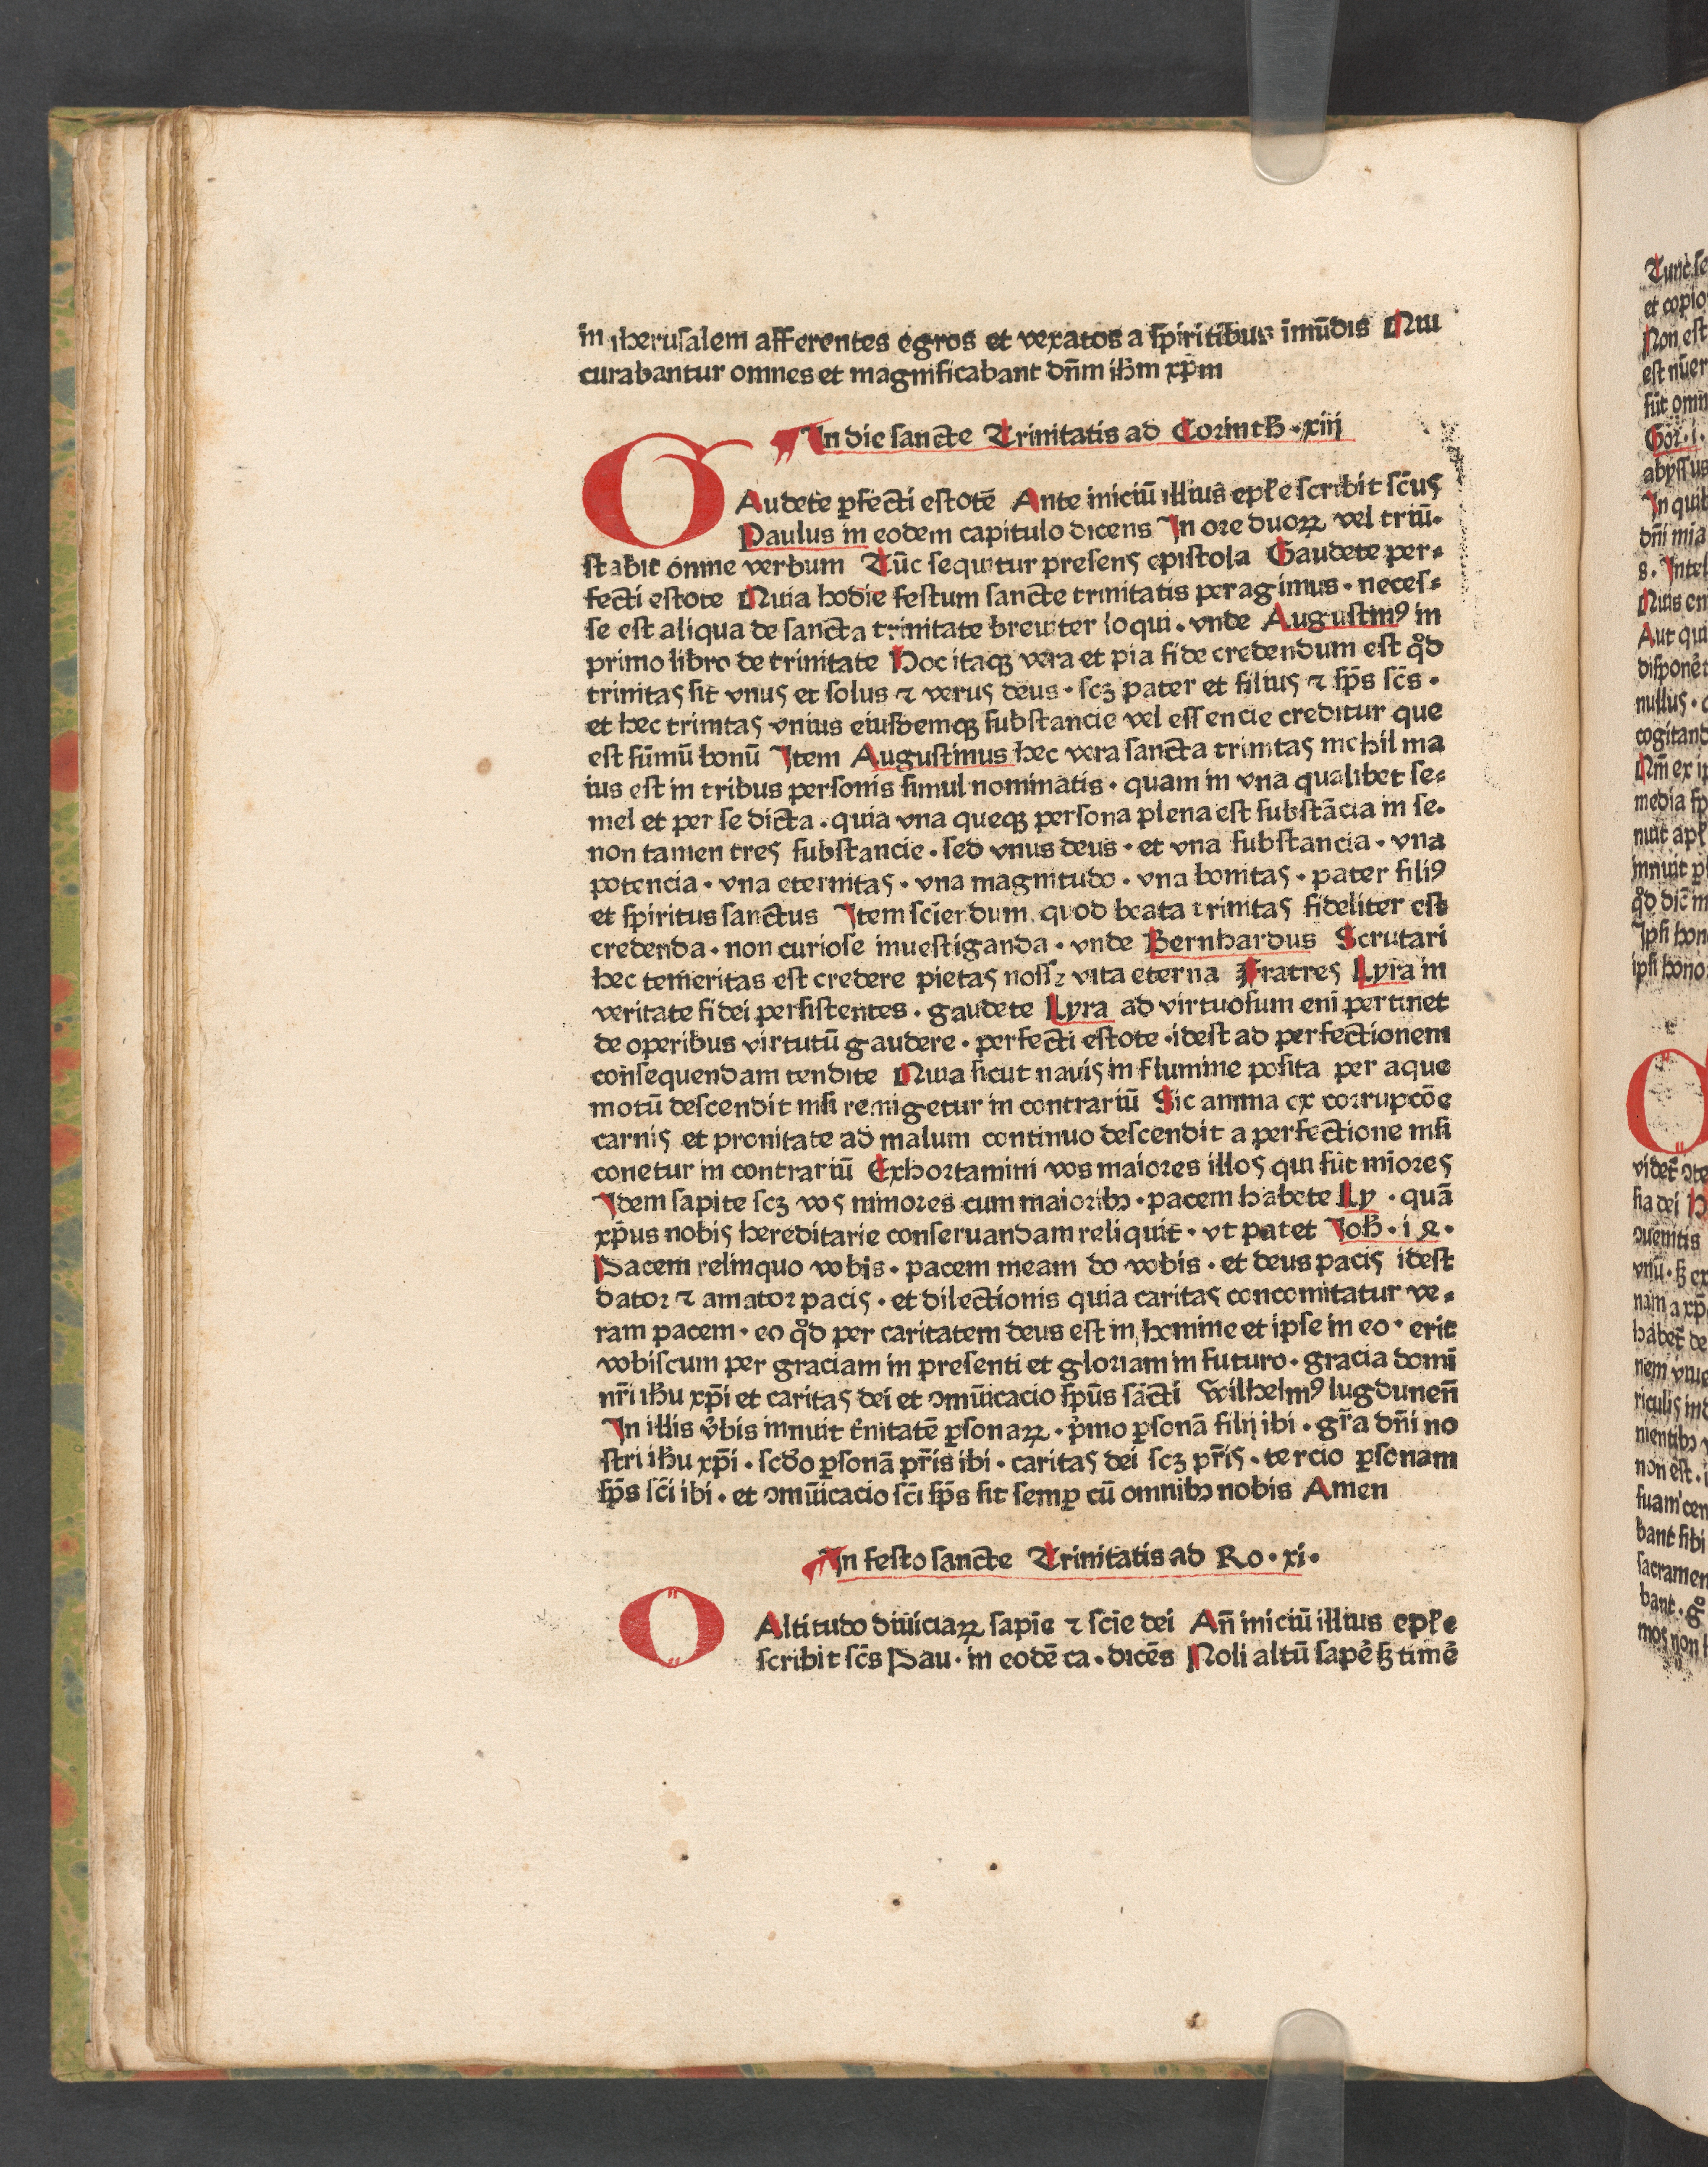 in iherusalem afferentes egros et vexatos a spiritibus īmūdis Qui
curabantur omnes et magnificabant dn̄m ihm̄ xp̄m
In die sancte Trinitatis ad Corinth . xiij
GAudete ꝑfecti estote Ante iniciū illius epl̄e scribit sc̄us
Paulus in eodem capitulo dicens In ore duoꝝ vel triū.
stabit omne verbum Tūc sequitur presens epistola Gaudete per-
fecti estote Quia hodie festum sancte trinitatis peragimus . neces-
se est aliqua de sancta trinitate breuiter loqui . vnde Augustinꝰ in
primo libro de trinitate Hoc itaqꝫ vera et pia fide credendum est qd̊
trinitas sit vnus et solus ⁊ verus deus . scꝫ pater et filius ⁊ sp̄s sc̄s .
et hec trinitas vnius eiusdemqꝫ substancie vel essencie creditur que
est sūmū bonū Item Augustinus hec vera sancta trinitas nichil ma
ius est in tribus personis simul nominatis . quam in vna qualibet se-
mel et per se dicta . quia vna queqꝫ persona plena est substācia in se.
non tamen tres substancie . sed vnus deus . et vna substancia . vna
potencia . vna eternitas . vna magnitudo . vna bonitas . pater filiꝰ
et spiritus sanctus Item sciendum quod beata trinitas fideliter est
credenda . non curiose inuestiganda . vnde Bernhardus Scrutari
hec temeritas est credere pietas nosse vita eterna Fratres Lyra in
veritate fidei persistentes . gaudete Lyra ad virtuosum enī pertinet
de operibus virtutū gaudere . perfecti estote . idest ad perfectionem
consequendam tendite Quia sicut nauis in flumine posita per aque
motū descendit nisi remigetur in contrariū Sic anima ex corrupcōe
carnis et pronitate ad malum continuo descendit a perfectione nisi
conetur in contrariū Exhortamini vos maiores illos qui sūt miōres
Idem sapite scꝫ vos minores cum maioribꝫ . pacem habete Ly . quā
xp̄us nobis hereditarie conseruandam reliquit . vt patet Ioh̄ . i ꝝ .
Pacem relinquo vobis . pacem meam do vobis . et deus pacis idest
dator ⁊ amator pacis . et dilectionis quia caritas concomitatur ve-
ram pacem . eo qd̊ per caritatem deus est in homine et ipse in eo . erit
vobiscum per graciam in presenti et gloriam in futuro . gracia domī
nr̄i ihū xp̄i et caritas dei et ꝯmūicacio sp̄us sācti Wilhelmꝰ lugdunen̄
In illis v̉bis innuit t̉nitatē ꝑsonaꝝ . p̉mo ꝑsonā filij ibi . gr̄a dn̄i no
stri ihū xp̄i . scd̊o ꝑsonā pr̄is ibi . caritas dei scꝫ pr̄is . tercio ꝑsonam
sp̄s sc̄i ibi . et ꝯmūicacio sc̄i sp̄s sit semꝑ cū omnibꝫ nobis Amen
In festo sancte Trinitatis ad Ro . xi .
O Altitudo diuiciaꝝ sapīe ⁊ scīe dei An̄ iniciū illius epl̄e
scribit sc̄s Pau . in eodē ca . dicēs Noli altū sapē sꝫ timē